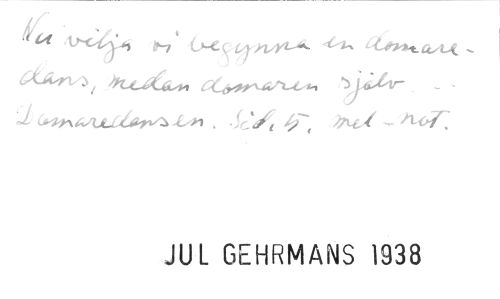 Nu vilja vi begynna en domare-
dans, medan domaren själv . . .
Domaredansen. Sid. 5. mel-not.
JUL GEHRMANS 1938